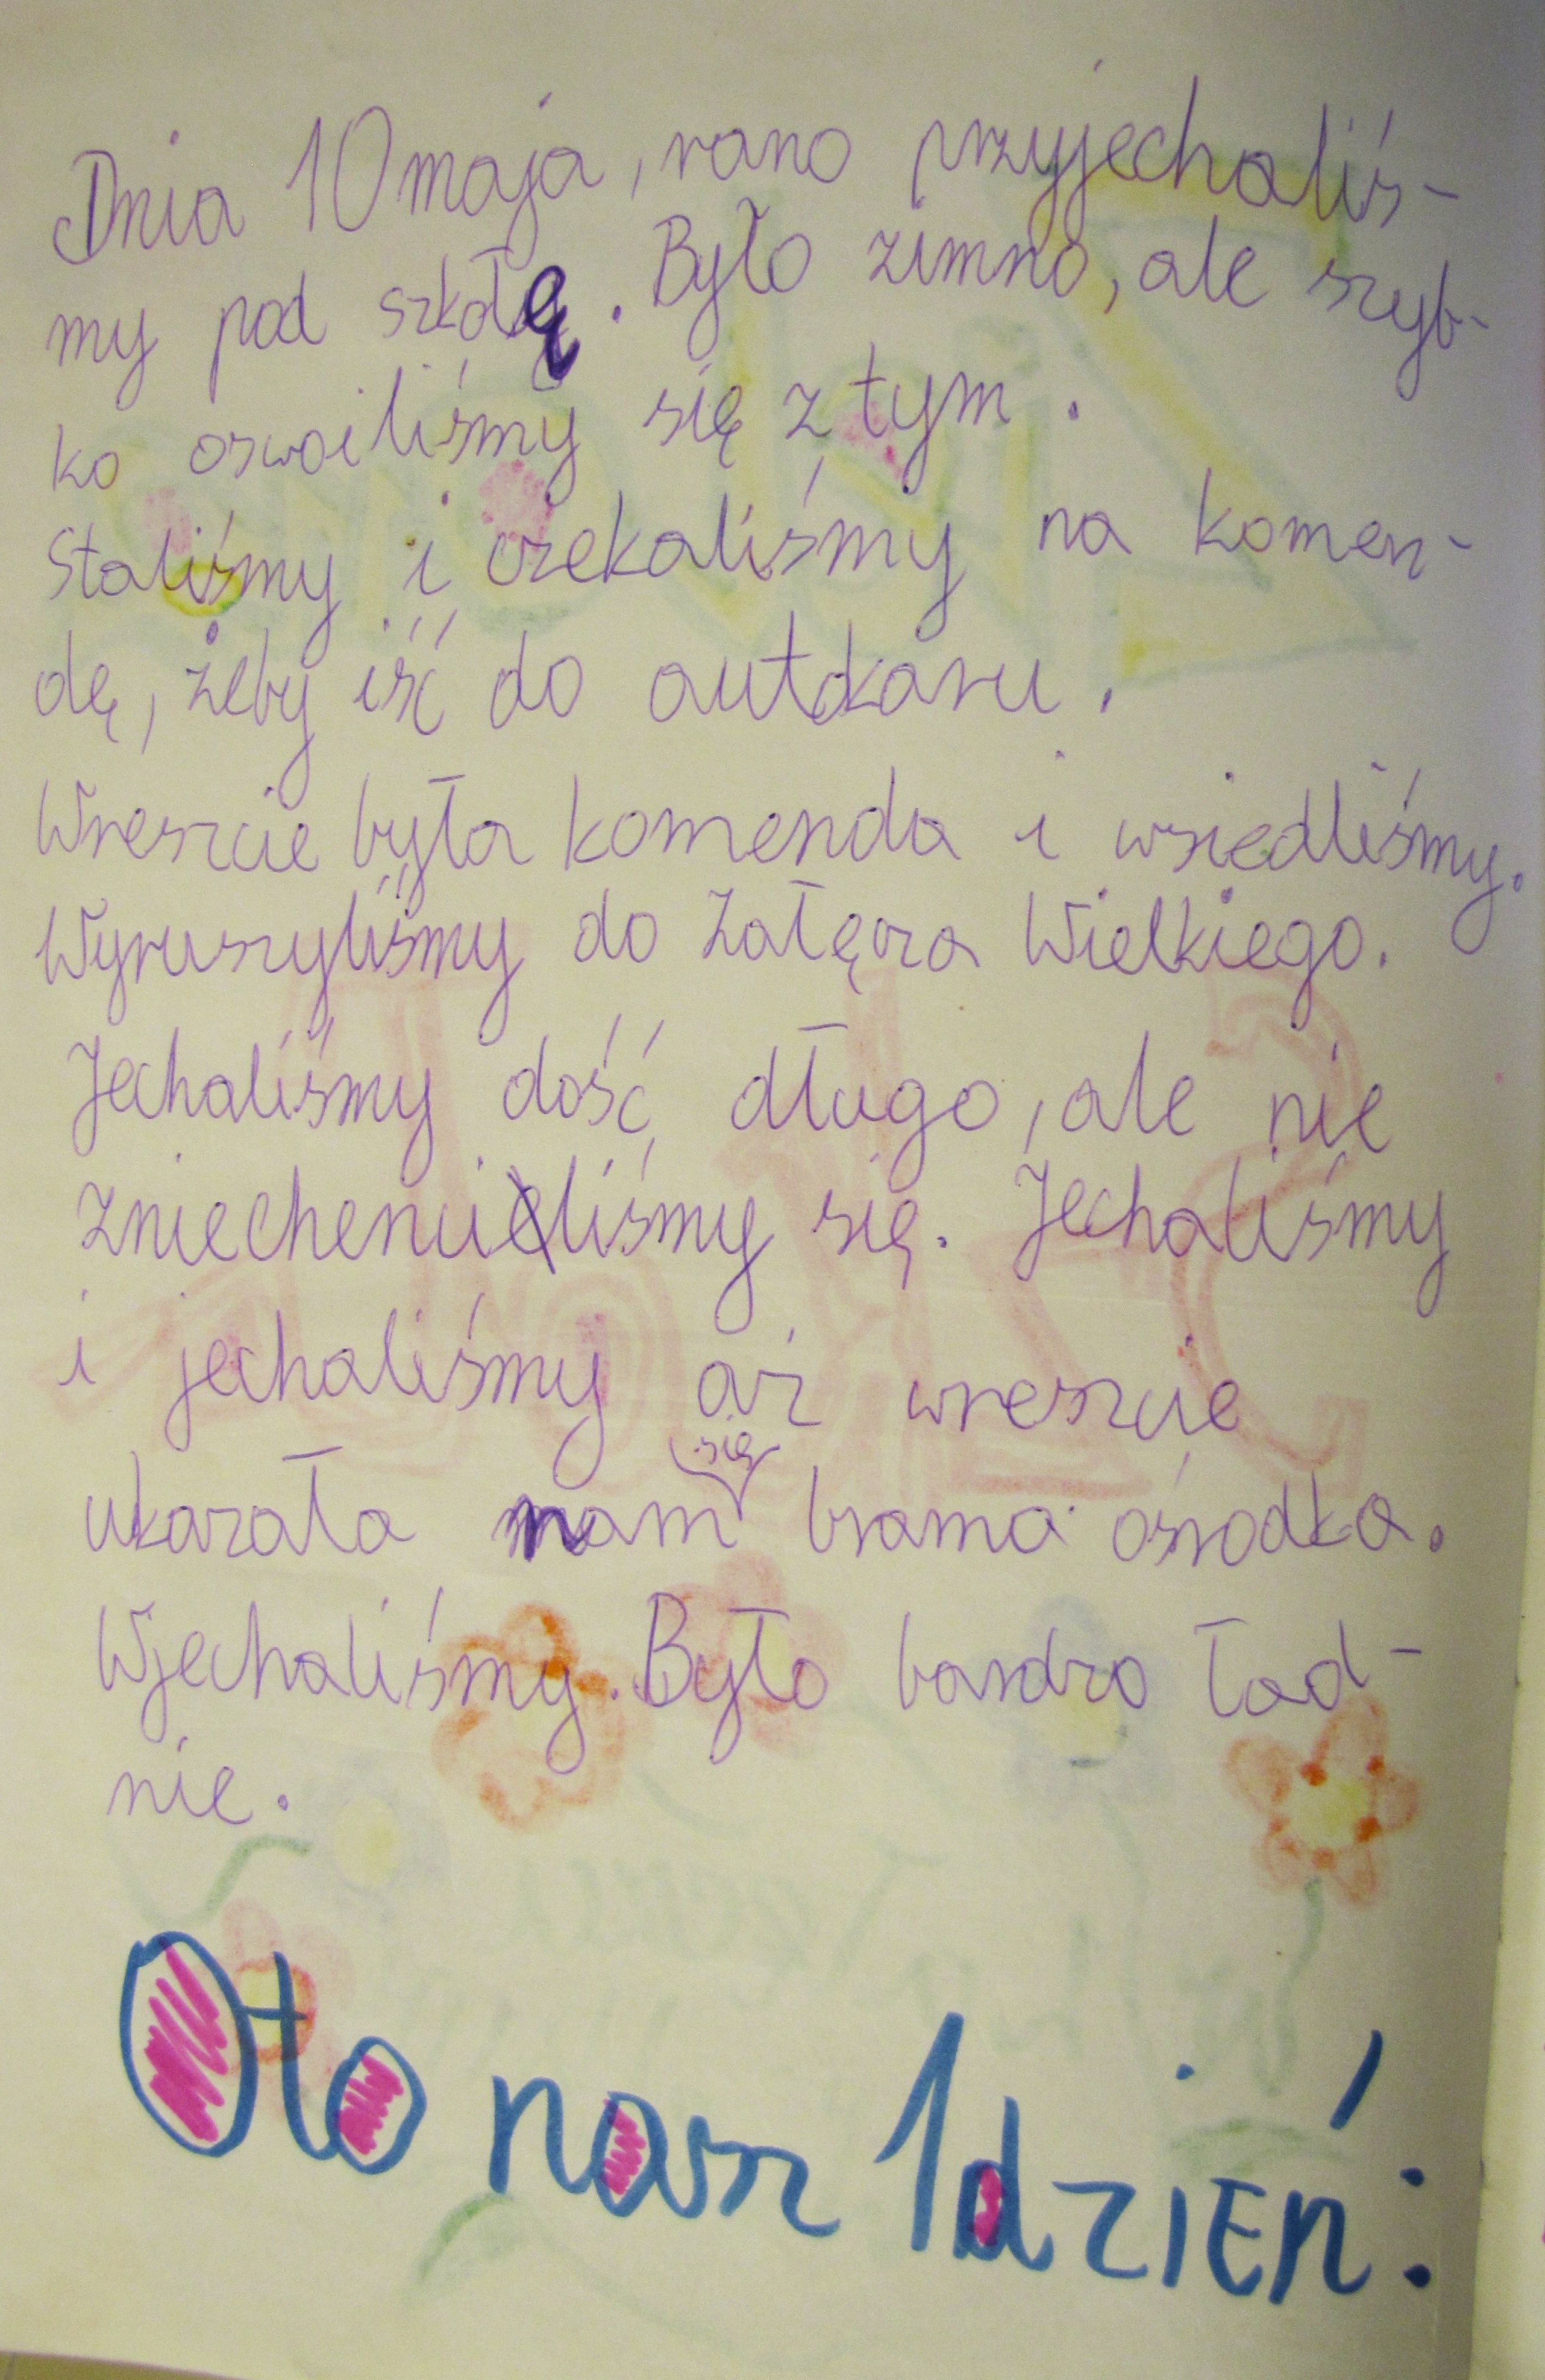 Dnia 10 maja, rano przyjechaliś-
my pod szkołę. Było zimno, ale szyb-
ko oswoiliśmy się z tym.
Staliśmy i czekaliśmy na komen-
dę, żeby iść do autokaru.
Wreszcie była komenda i wsiedliśmy.
Wyruszyliśmy do Załęcza Wielkiego.
Jechaliśmy dość długo, ale nie
zniechenciliśmy się. Jechaliśmy
i jechaliśmy aż wreszcie
ukazała nam się brama ośrodka.
Wjechaliśmy. Było bardzo ład-
nie.
Oto nasz 1 dzień: